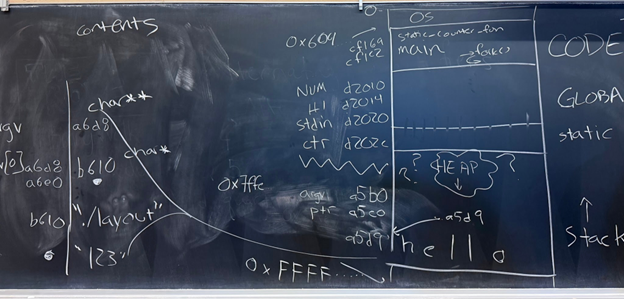 contents
char**
a6d8
char*
v[0] a6d8
b610
a6e0
b610 "./layout"
"123"
0-
OS
0x604
cf169
cf1c2
main
NUM d2010
HI d2014
stdin d2020
ctr d202c
? HEAP ?
0x7ffc
argv a5b0
ptr a5c0
a5d9
a5d9
hello
0xFFFF......
CODE
GLOBA
static
↑
Stack